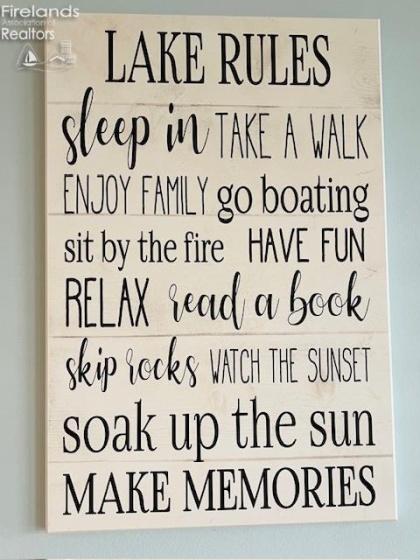 Firelands
Association of
Realtors
LAKE RULES
sleep in TAKE A WALK
ENJOY FAMILY go boating
sit by the fire HAVE FUN
RELAX read a book
skip rocks WATCH THE SUNSET
soak up the sun
MAKE MEMORIES